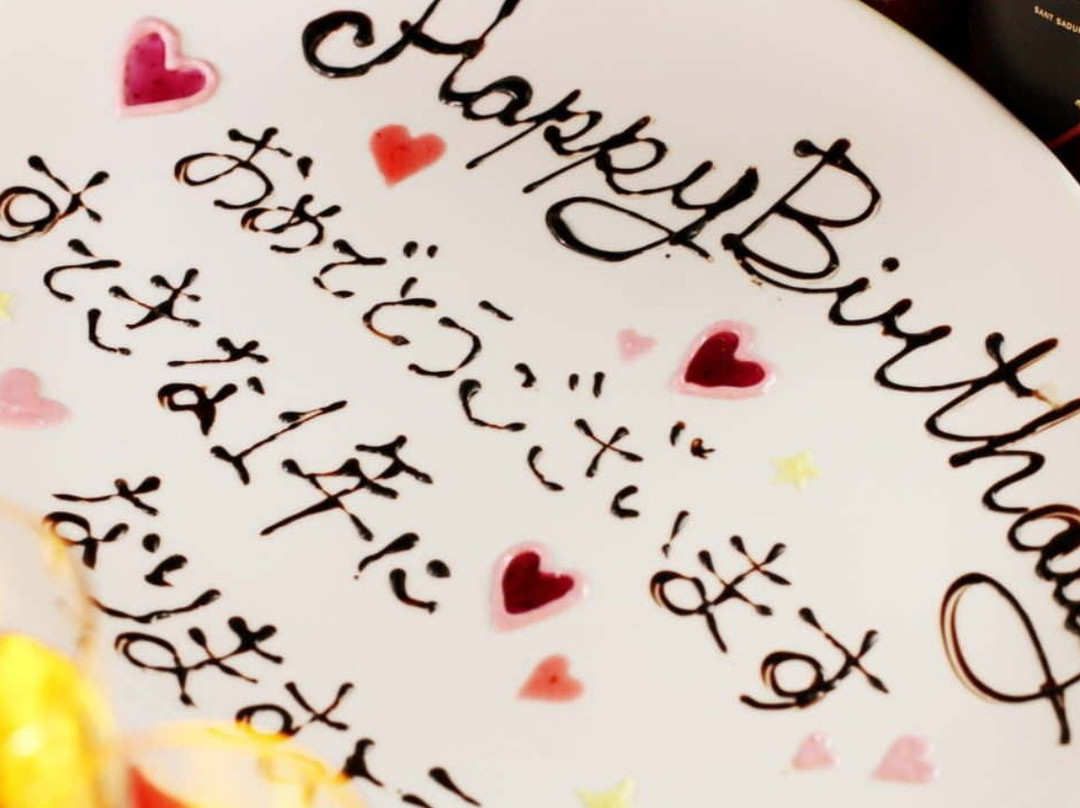 Happy Birthday
おめでとうございます
すてきな1年に
なります
SANT SADU